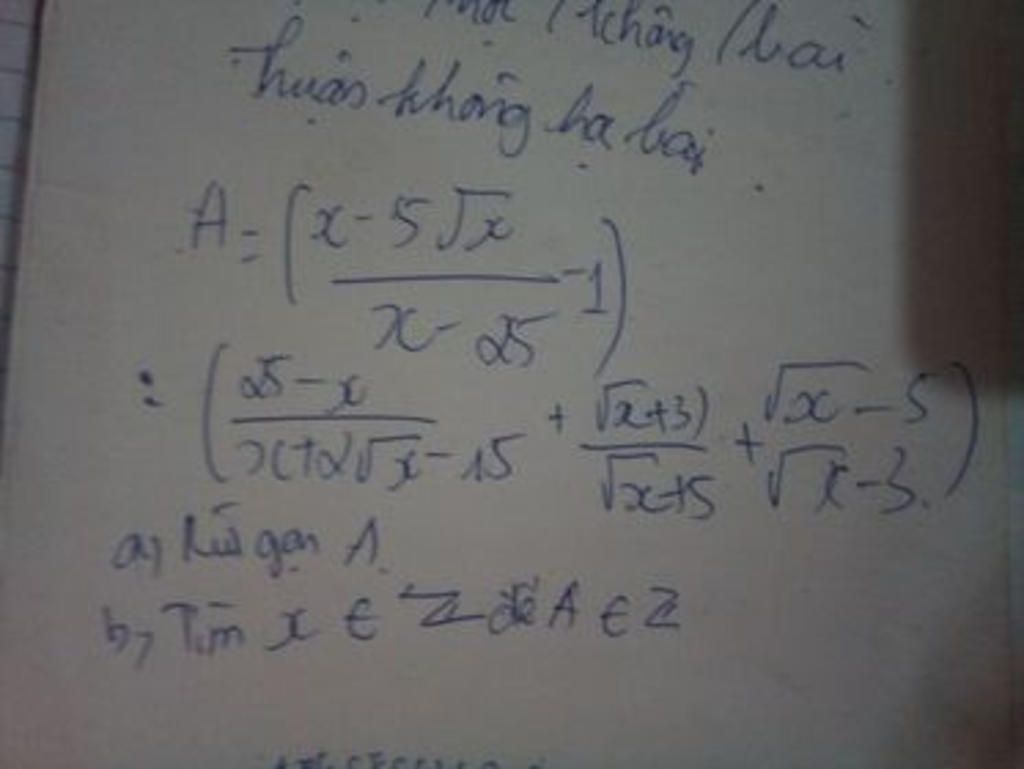 không / bài
Thuận không hạ bài
A = ( x - 5√x / x - 25 - 1 )
: ( 25 - x / x + 2√x - 15 + √x + 3) / √x + 5 + √x - 5 / √x - 3 )
a, Rút gọn A
b, Tìm x ∈ Z để A ∈ Z